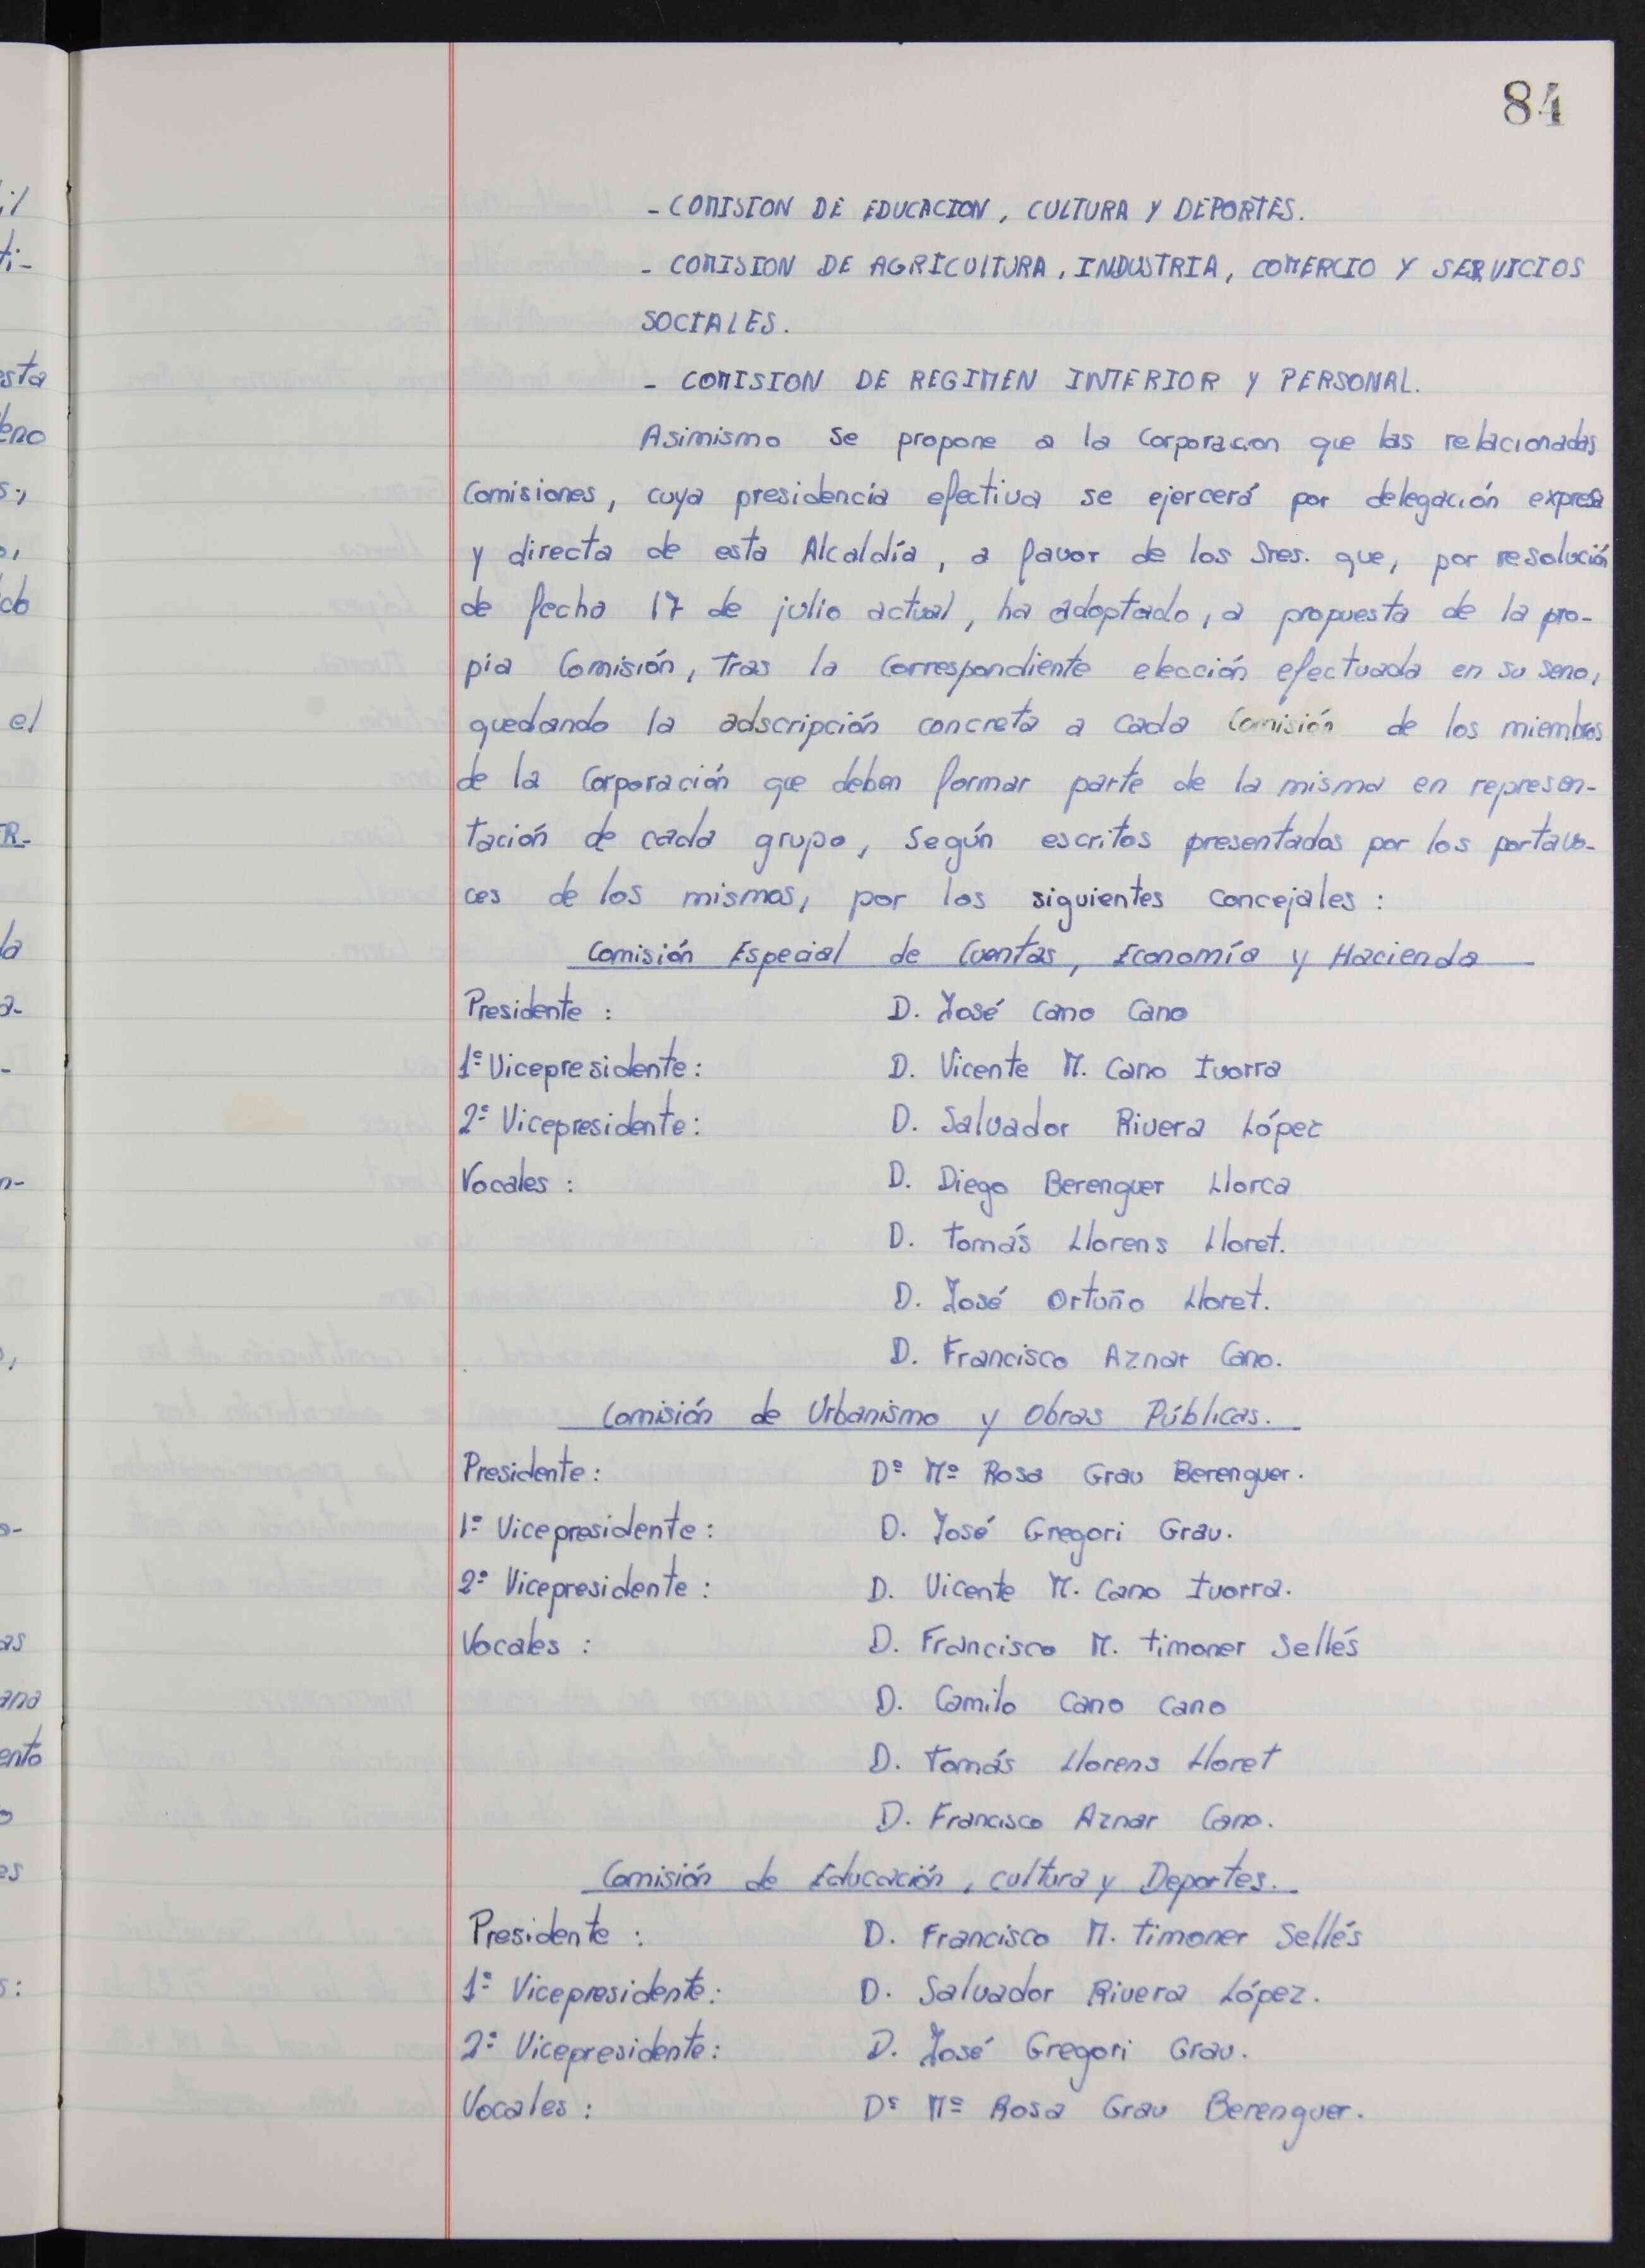 84
- COMISION DE EDUCACION, CULTURA Y DEPORTES.
- COMISION DE AGRICULTURA, INDUSTRIA, COMERCIO Y SERVICIOS
SOCIALES.
- COMISION DE REGIMEN INTERIOR Y PERSONAL.
Asimismo se propone a la Corporacion que las relacionadas
Comisiones, cuya presidencia efectiva se ejercerá por delegación expresa
y directa de esta Alcaldía, a favor de los Sres. que, por resolución
de fecha 17 de julio actual, ha adoptado, a propuesta de la pro-
pia Comisión, Tras la Correspondiente elección efectuada en su seno,
quedando la adscripción concreta a cada Comisión de los miembros
de la Corporación que deben formar parte de la misma en represen-
tación de cada grupo, Según escritos presentados por los portavo-
ces de los mismos, por los siguientes Concejales :
Comisión Especial de Cuentas, Economía y Hacienda
Presidente : D. José Cano Cano
1º Vicepresidente: D. Vicente M. Cano Ivorra
2º Vicepresidente: D. Salvador Rivera López
Vocales : D. Diego Berenguer Llorca
D. Tomás Llorens Lloret.
D. José Ortuño Lloret.
D. Francisco Aznar Cano.
Comisión de Urbanismo y Obras Públicas.
Presidente: Dª Mª Rosa Grau Berenguer.
1º Vicepresidente: D. José Gregori Grau.
2º Vicepresidente: D. Vicente M. Cano Ivorra.
Vocales : D. Francisco M. Timoner Sellés
D. Camilo Cano Cano
D. Tomás Llorens Lloret
D. Francisco Aznar Cano.
Comisión de Educación, Cultura y Deportes.
Presidente : D. Francisco M. Timoner Sellés
1º Vicepresidente: D. Salvador Rivera López.
2º Vicepresidente: D. José Gregori Grau.
Vocales: Dª Mª Rosa Grau Berenguer.